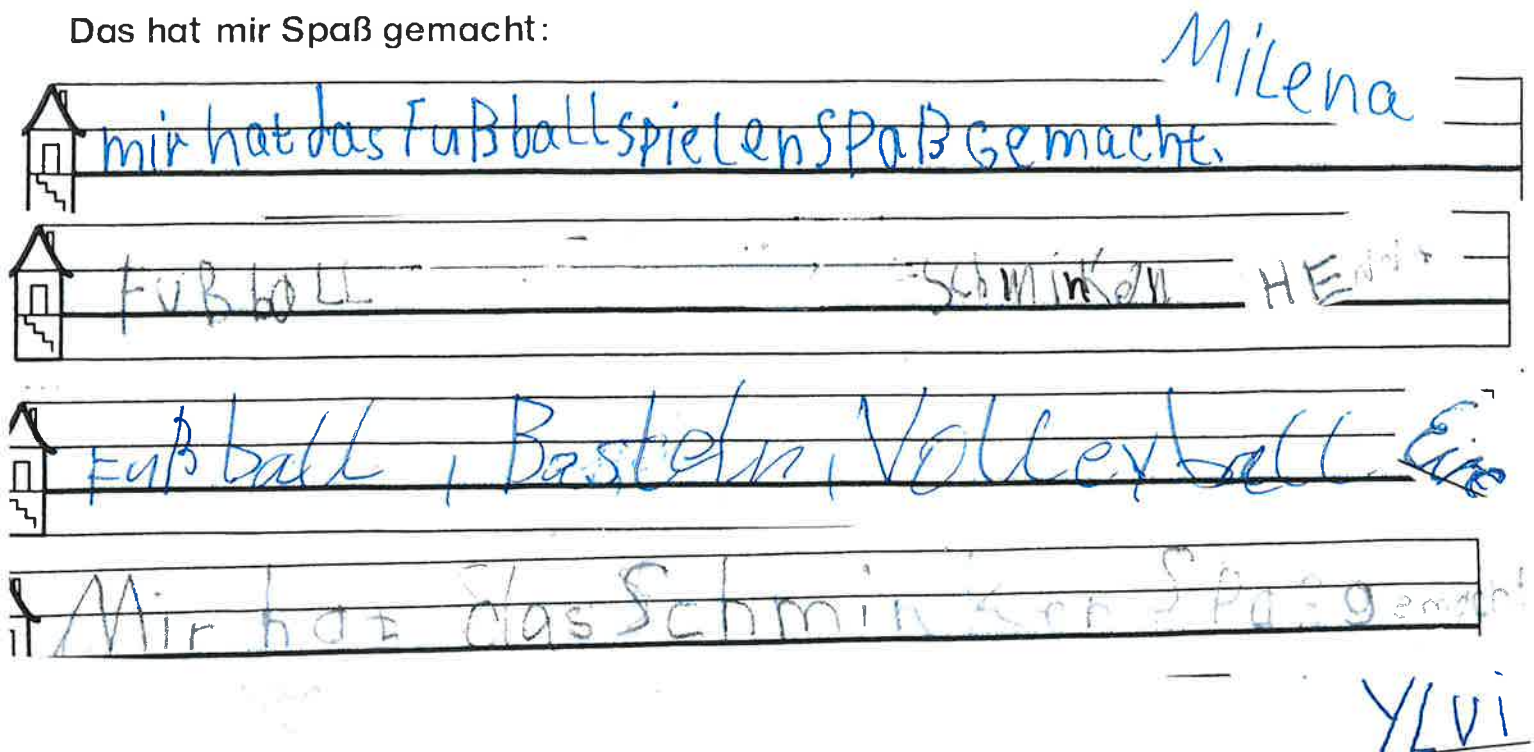 Das hat mir Spaß gemacht:
Milena
mir hat das Fußball spielen Spaß Gemacht.
Fußball schminken
Fußball, Basteln, Volleyball
Mir hat das Schminken Spaß gemacht
YLVi